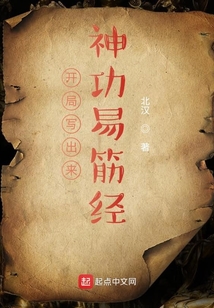 开局写出来
神功易筋经
北汉 著
起点
起点中文网